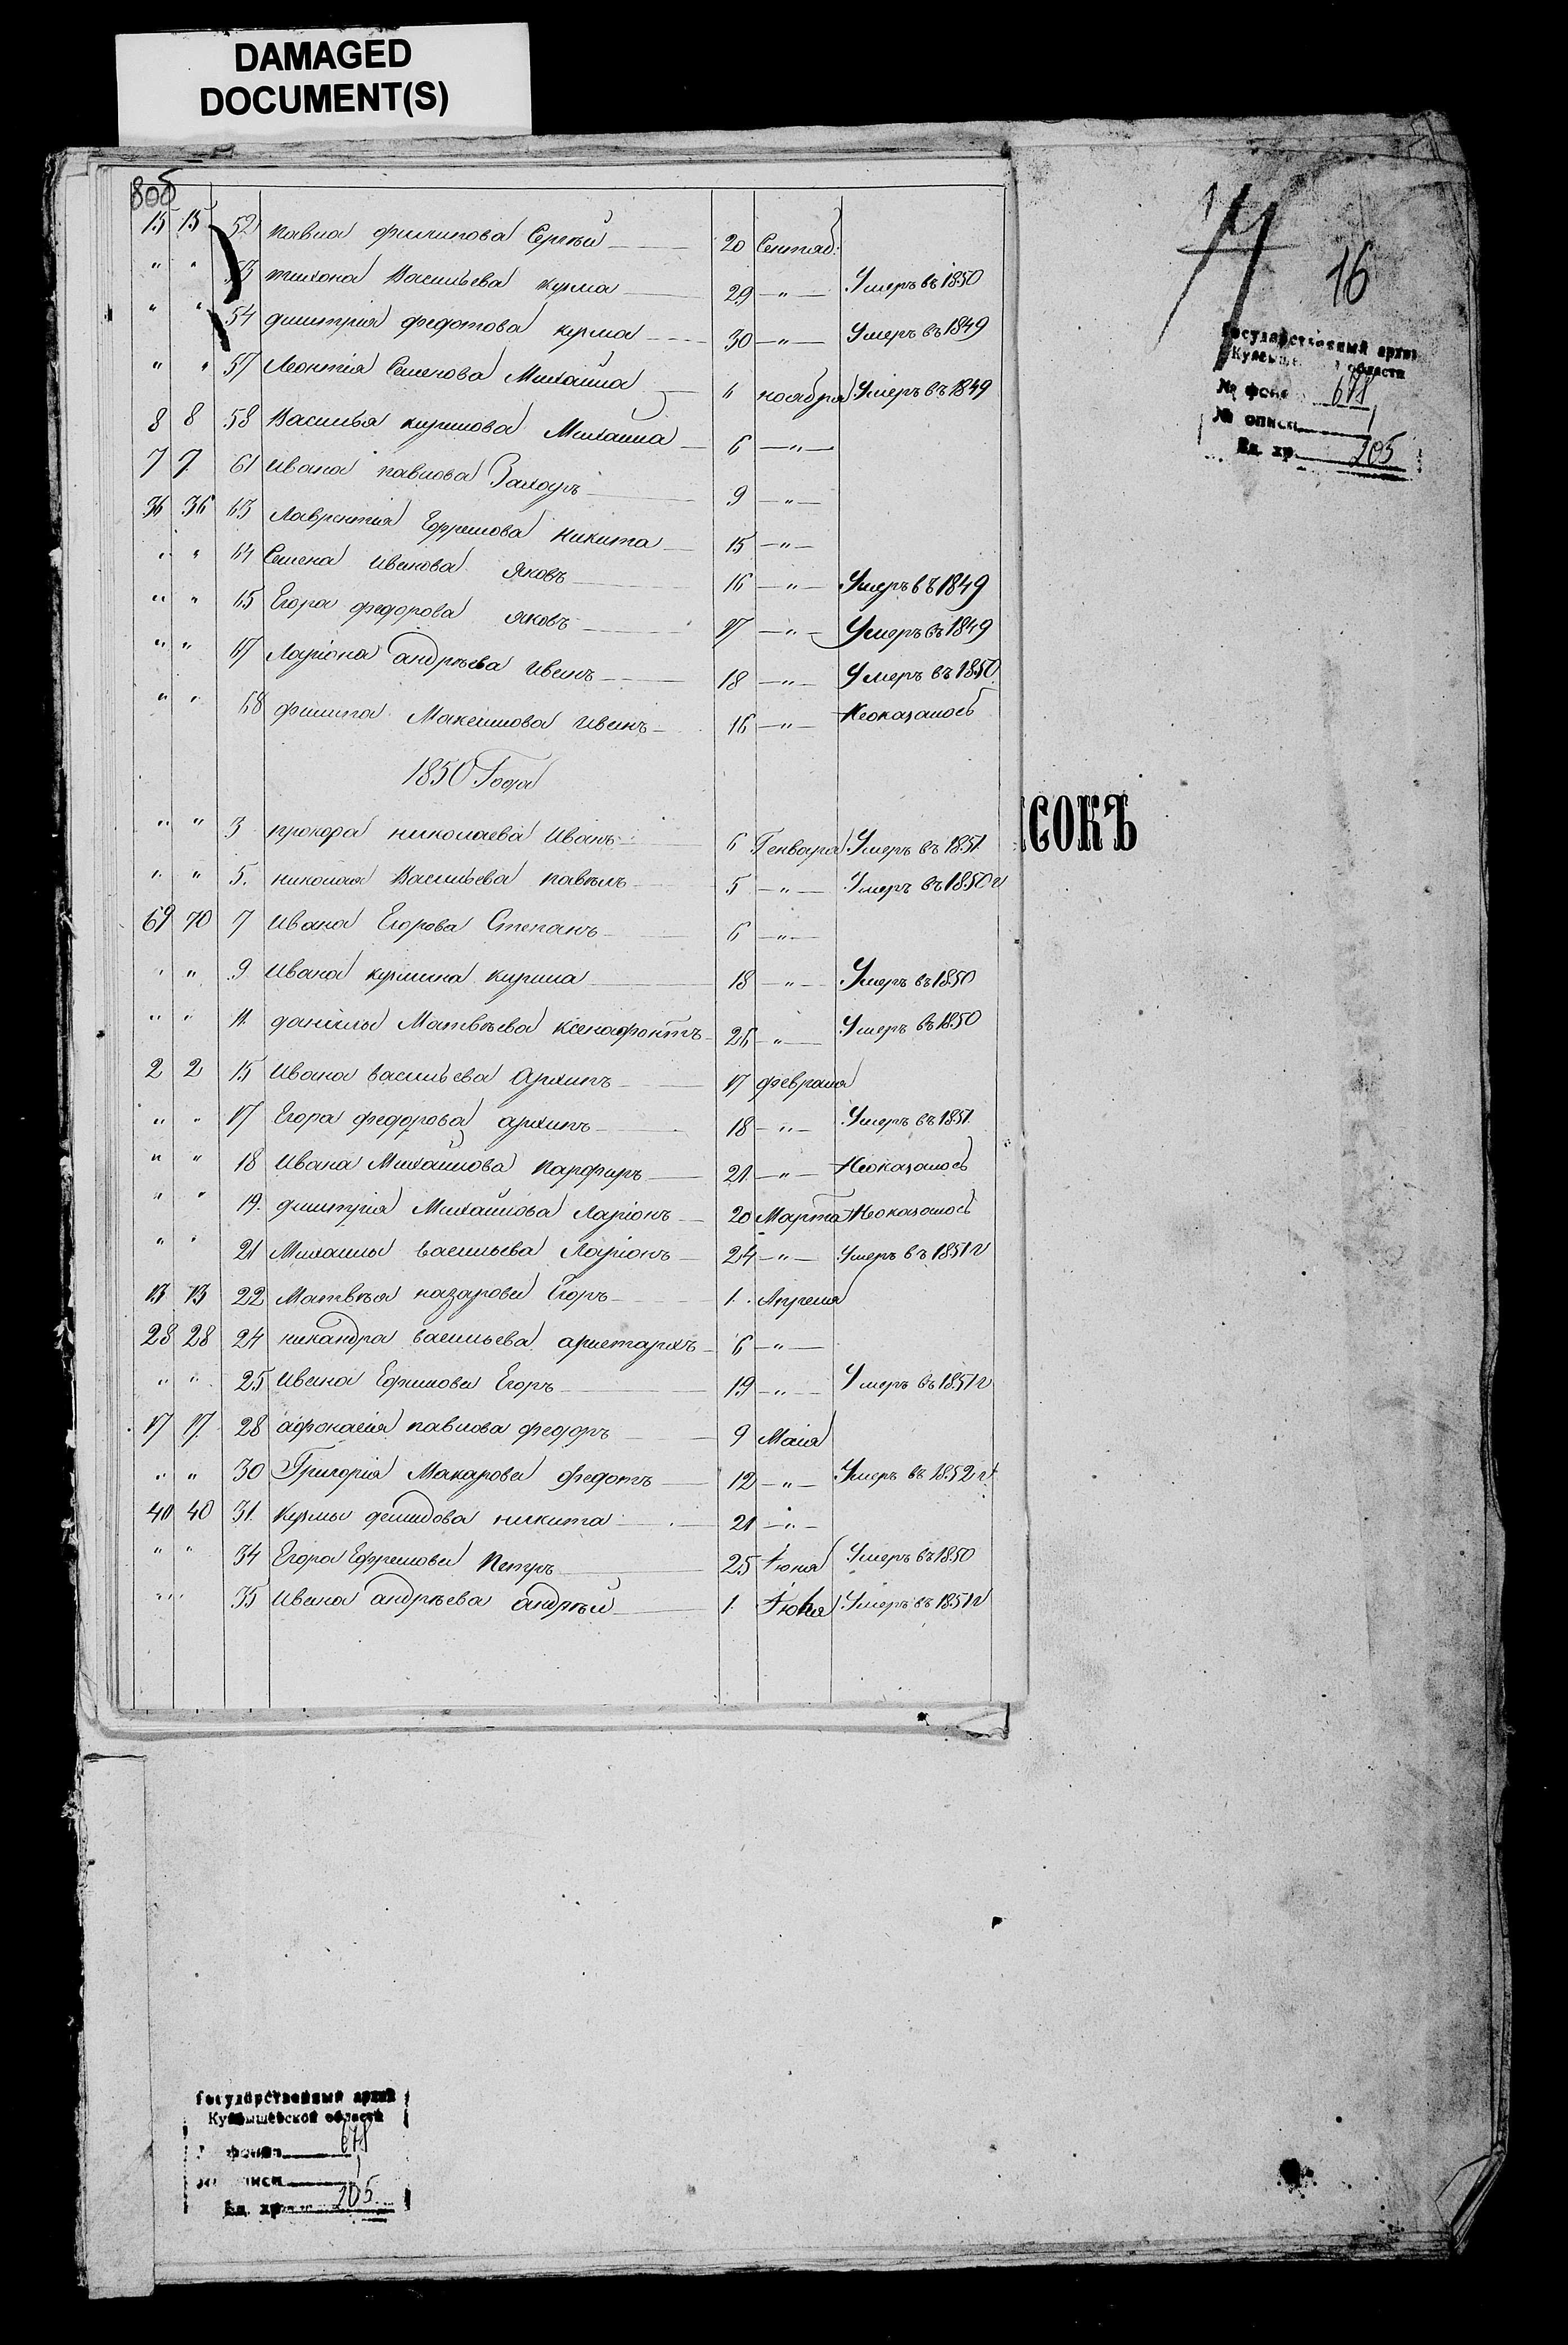 DAMAGED
DOCUMENT(S)
15 15 52 павла филипова Сергѣй 20 Сентяб:
" " 53 тихона Васильева кузма 29 " Умеръ въ 1850
" " 54 дмитрія федотова кузма 30 " Умеръ въ 1849
" " 57 Леонтія Семенова Михаила 6 ноября Умеръ въ 1849
8 8 58 Василья кирилова Михаила 6 "
7 7 61 Ивана павлова Захаръ 9 "
36 36 63 Лаврентія Ефремова никита 15 "
" " 64 Семена Иванова Яковъ 16 " Умеръ въ 1849
" " 65 Егора федорова яковъ 17 " Умеръ въ 1849
" " 67 Ларіона андрѣева Иванъ 18 " Умеръ въ 1850
" " 68 филипа Максимова Иванъ 16 " Неоказалось
1850 Года
" " 3 прохора николаева Иванъ 6 Генваря Умеръ въ 1851
" " 5. николая Васильева павелъ 5 " Умеръ въ 1850 г
69 70 7 Ивана Егорова Степанъ 6 "
" " 9 Ивана кузмина кирила 18 " Умеръ въ 1850
" " 11. данилы Матвѣева ксенофонтъ 26 " Умеръ въ 1850
2 2 15 Ивана васильева Архипъ 17 февраля
" " 17 Егора федорова архипъ 18 " Умеръ въ 1851
" " 18 Ивана Михайлова парфиръ 21 " Неоказалось
" " 19. дмитрія Михайлова Ларіонъ 20 Марта Неоказалось
" " 21 Михаилы васильева Ларіонъ 24 " Умеръ въ 1851 г
13 13 22 Матвѣя назарова Егоръ 1. Апреля
28 28 24 никандра васильева аристархъ 6 "
" " 25 Ивана Ефимова Егоръ 19 " Умеръ въ 1851 г
17 17 28 афонасія павлова федоръ 9 Маія
" " 30 Григорія Макарова Федотъ 12 " Умеръ въ 1852 г
40 40 31. кузмы демидова никита 21 "
" " 34 Егора Ефремова Петръ 25 Іюня Умеръ въ 1850
" " 35 Ивана андрѣева андрѣй 1. Умеръ въ 1851 г
16
Государственный архив
области
№ фонд 678
№ описи 1
Ед. хр. 205
СОКЪ
Государственный архив
Куйбышевской области
фонда 678
описи 1
Ед. хр. 205